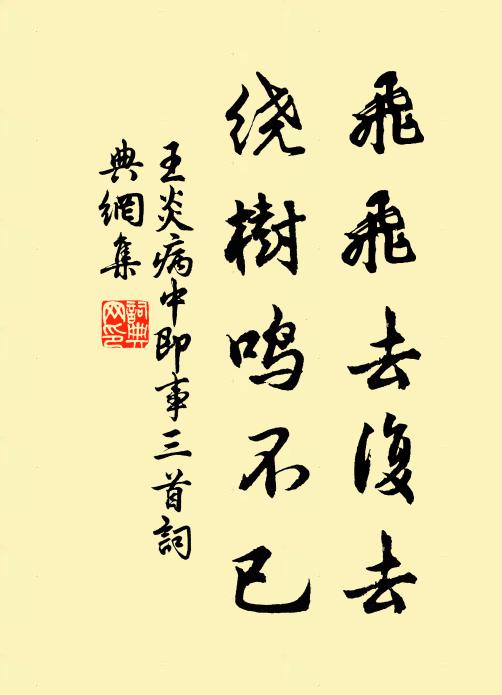 飛飛去復去
绕樹鸣不已
王炎病中即事三首詞
典網集
詞典
网印